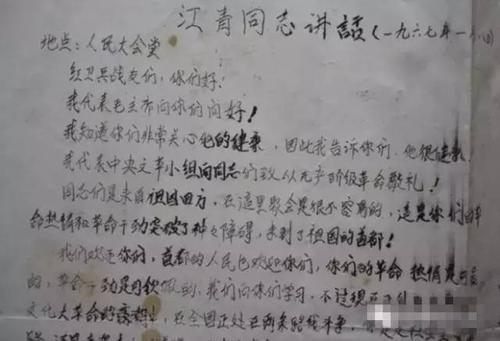 江青同志讲话(一九六七年一月
地点:人民大会堂
红卫兵战友们,你们好!
我代表毛主席向你们问好!
我知道你们非常关心他的健康,因此我告诉你们,他很健康
我代表中央文革小组向同志们致从无产阶级革命敬礼!
同志们是来自祖国四方,在这里聚会是很不容易的,这是你们的革
命热情和革命干劲突破了种种障碍,来到了祖国的首都!
我们欢迎你们,首都的人民也欢迎你们,你们的革命热情是
的,革命干劲是可钦佩的,我们向你们学习,不过现在
文化大革命的 在全国正处在两条路线斗争,